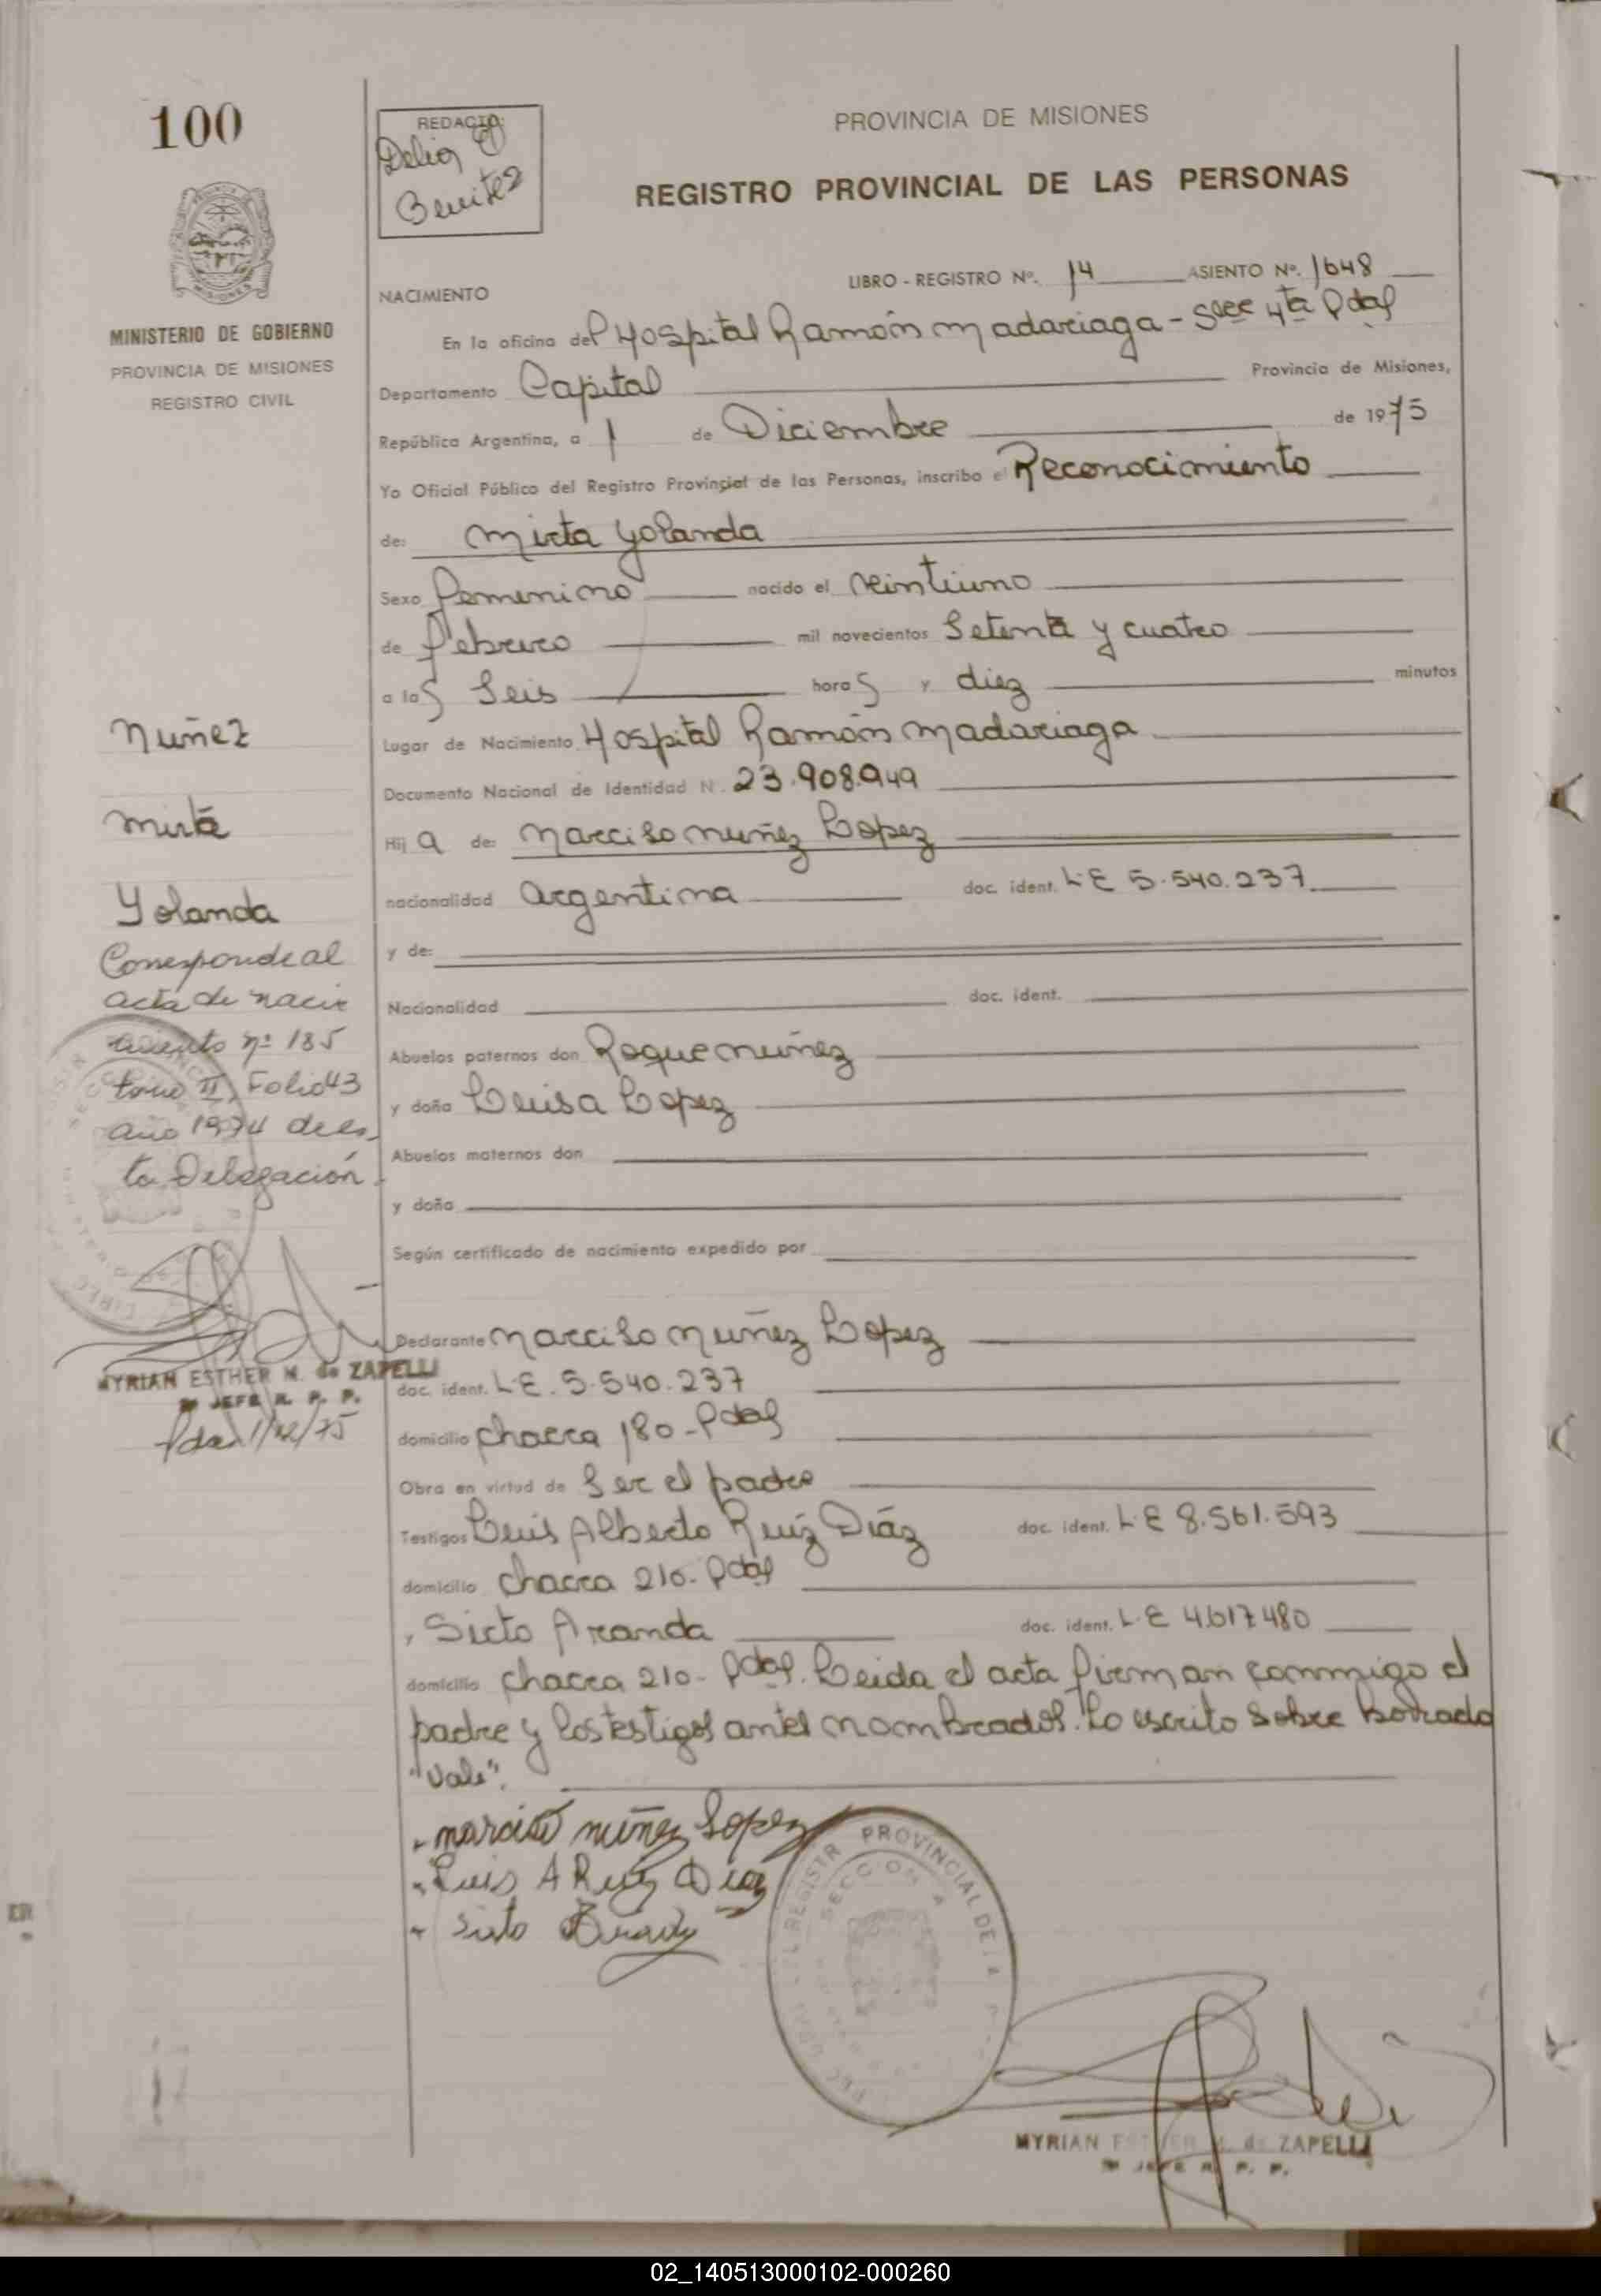 100
REDACTO:
Delia
Benitez
PROVINCIA DE MISIONES
REGISTRO PROVINCIAL DE LAS PERSONAS
MINISTERIO DE GOBIERNO
PROVINCIA DE MISIONES
REGISTRO CIVIL
LIBRO - REGISTRO Nº. 14 ASIENTO Nº. 1648
NACIMIENTO
En la oficina del Hospital Ramón Madariaga - Secc 4ta Pdas
Departamento Capital Provincia de Misiones,
República Argentina, a 1 de Diciembre de 1975
Yo Oficial Público del Registro Provincial de las Personas, inscribo el Reconocimiento
de: Mirta Yolanda
Sexo femenino nacido el veintiuno
de febrero mil novecientos Setenta y cuatro
a las Seis horas y diez minutos
Lugar de Nacimiento Hospital Ramón Madariaga
Documento Nacional de Identidad N. 23.908.949
Hija de: Narciso Nuñez Lopez
nacionalidad Argentina doc. ident. L E 5.540.237
y de:
Nacionalidad doc. ident.
Abuelos paternos don Roque Nuñez
y doña Luisa Lopez
Abuelos maternos don
y doña
Según certificado de nacimiento expedido por
Declarante Narciso Nuñez Lopez
doc. ident. L E. 5.540.237
domicilio chacra 180 - Pdas
Obra en virtud de Ser el padre
Testigos Luis Alberto Ruiz Diáz doc. ident. L E 8.561.593
domicilio chacra 210 - Pdas
y Sixto Aranda doc. ident. L E 4.617.480
domicilio chacra 210 - Pdas. Leida el acta firman conmigo el
padre y los testigos antes nombrados. Lo escrito sobre borrado
"Vale".
Nuñez
Mirta
Yolanda
Corresponde al
acta de naci
miento nº 185
tomo II, Folio 43
año 1974 de es
ta Delegación
MYRIAN ESTHER N. de ZAPELLI
JEFE R. P. P.
Pdas 1/12/75
narciso nuñez Lopez
Luis A Ruiz Diaz
Sixto
REGISTR PROVINCIAL DE LA
SECCION 4
MYRIAN ESTHER N. de ZAPELLI
JEFE R. P. P.
02_140513000102-000260